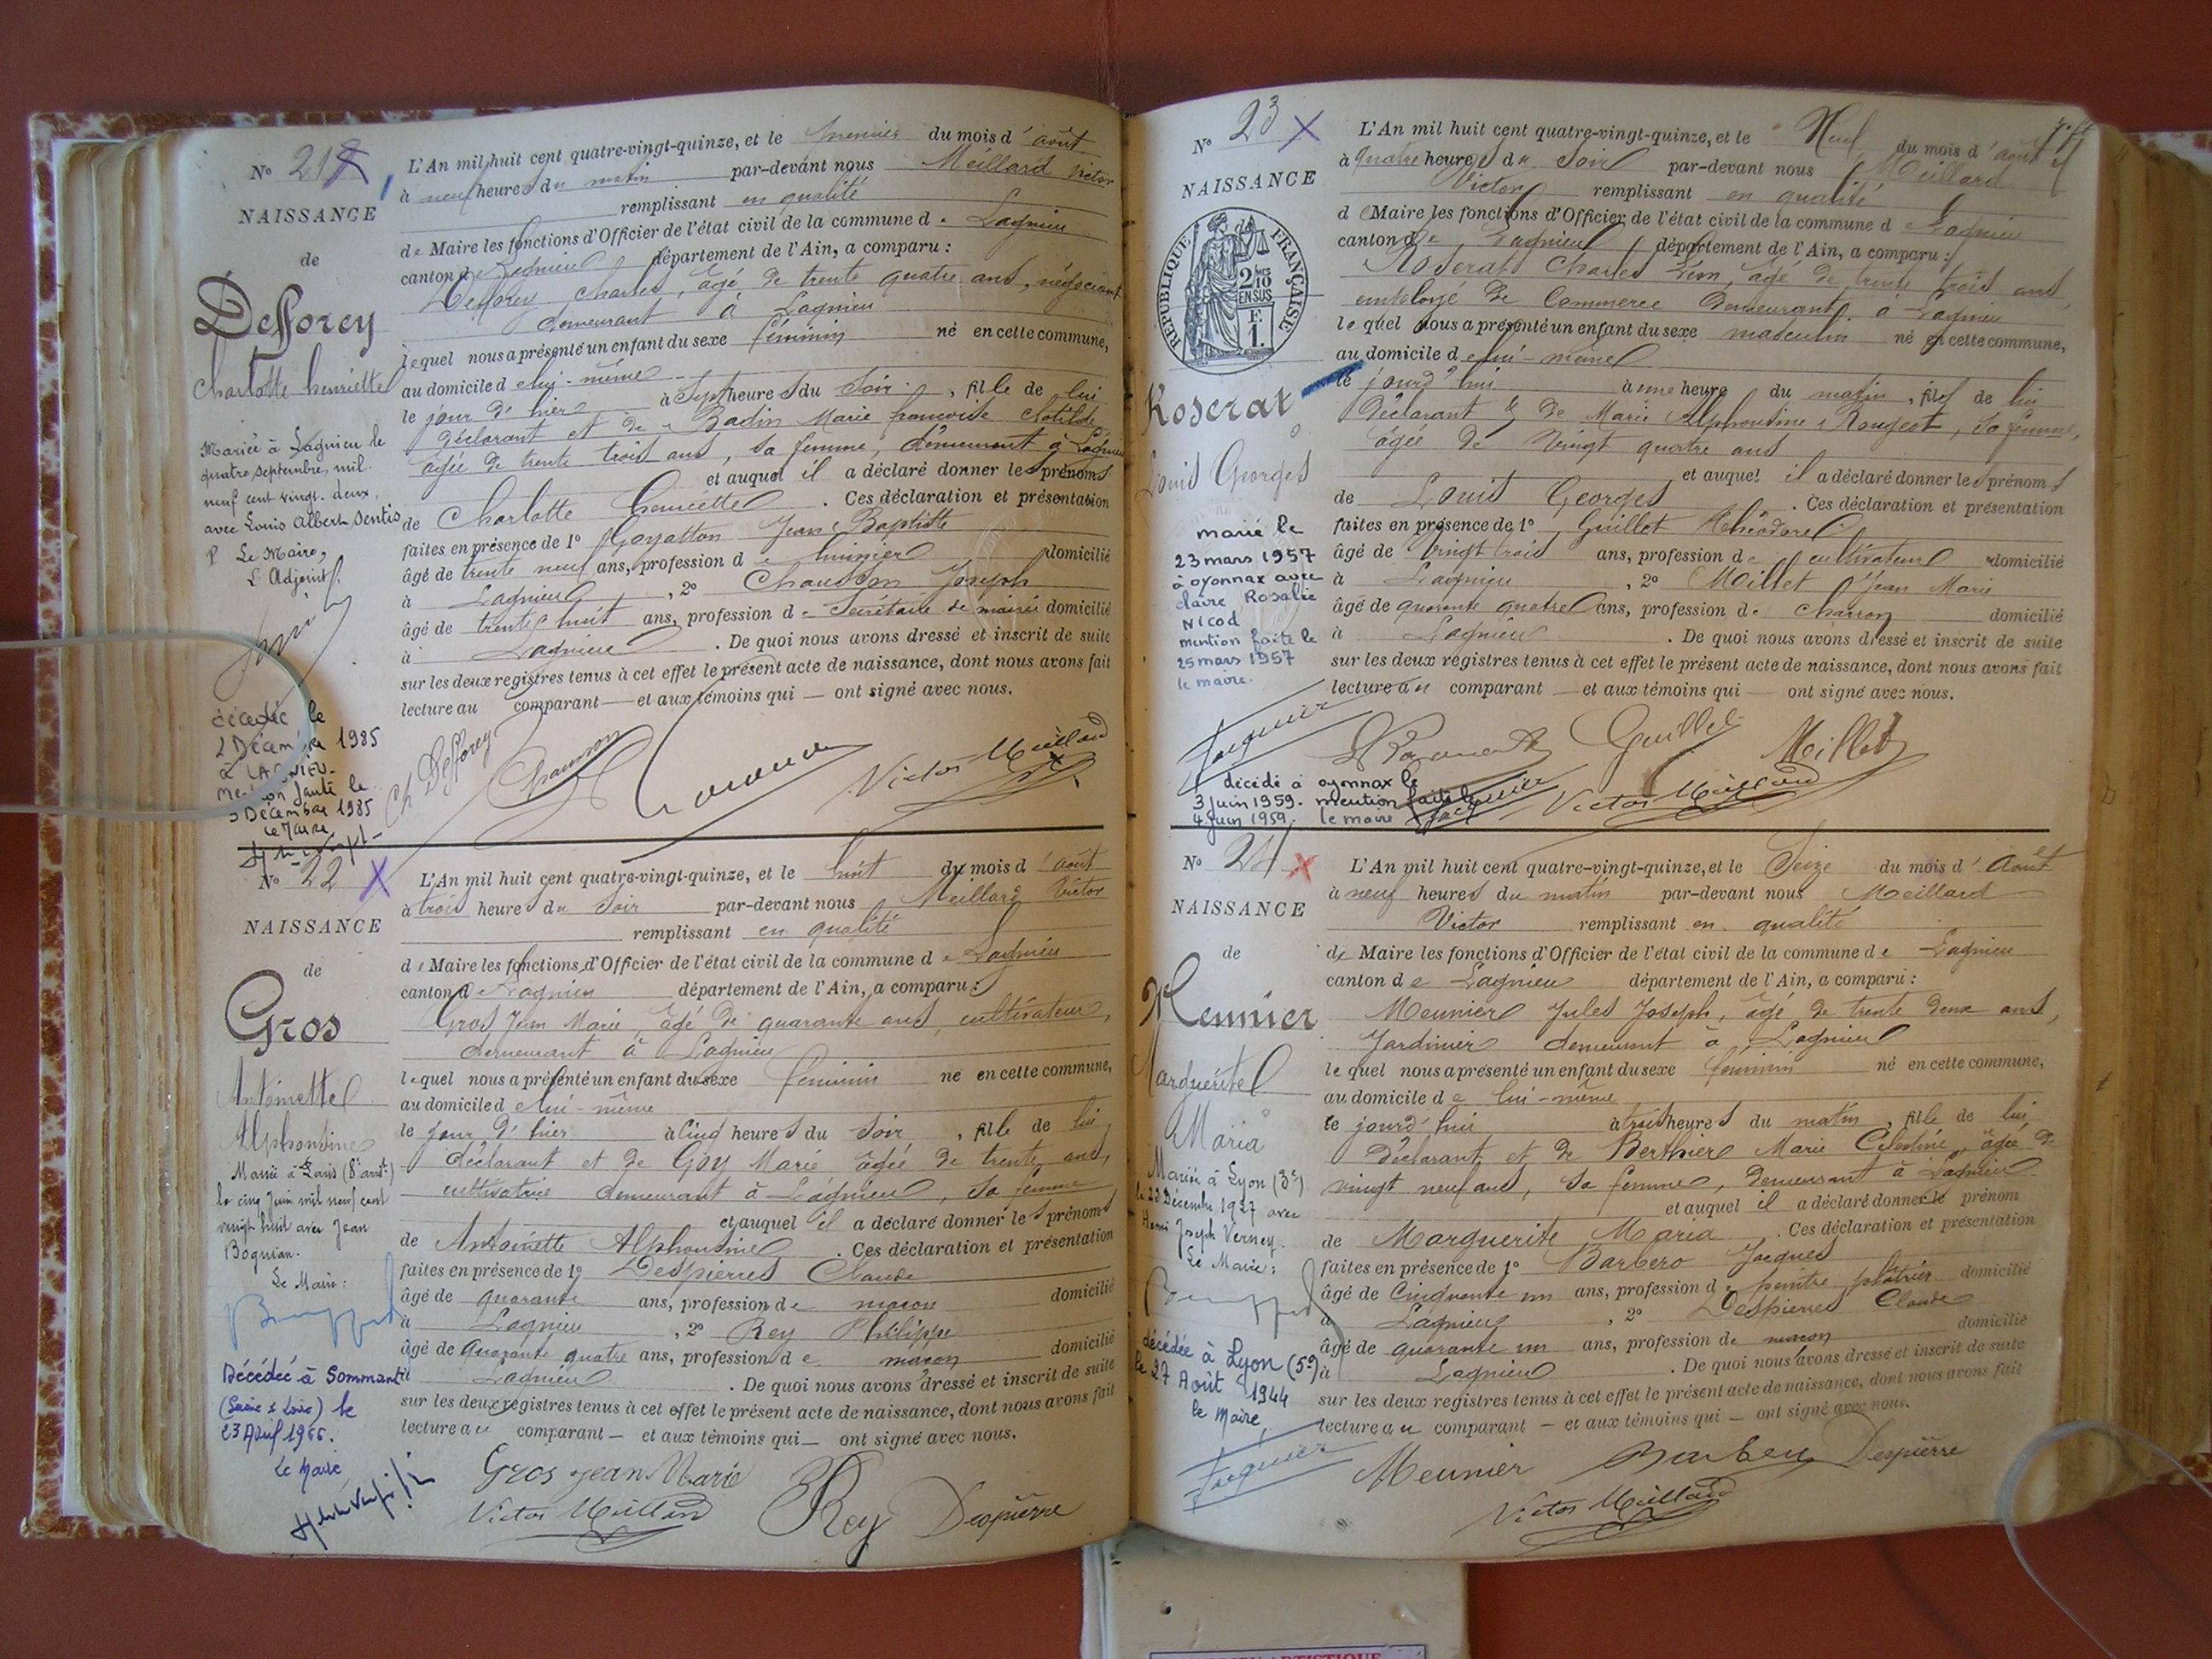 N° 21
NAISSANCE
de
Defforey
Charlotte henriette
Mariée à Lagnieu le
quatre septembre, mil
neuf cent vingt-deux,
avec Louis Albert Sentis
P Le Maire,
L'Adjoint
décédée le
2 Décembre 1985
à LAGNIEU
mention faite le
3 Décembre 1985
Le Maire
L'An mil huit cent quatre-vingt-quinze, et le premier du mois d'août
à neuf heures du matin par-devant nous Meillard Victor
remplissant en qualité
de Maire les fonctions d'Officier de l'état civil de la commune de Lagnieu
canton de Lagnieu département de l'Ain, a comparu :
Defforey Charles, âgé de trente quatre ans, négociant
demeurant à Lagnieu
lequel nous a présenté un enfant du sexe féminin né en cette commune,
au domicile de lui-même
le jour d'hier à Sept heures du soir, fille de lui
déclarant et de Badin Marie françoise Clotilde,
âgée de trente trois ans, sa femme, demeurant à Lagnieu
et auquel il a déclaré donner les prénoms
de Charlotte henriette . Ces déclaration et présentation
faites en présence de 1° Jean Baptiste
âgé de trente neuf ans, profession d'huissier domicilié
à Lagnieu , 2° Chausson Joseph
âgé de trente huit ans, profession de Secrétaire de mairie domicilié
à Lagnieu . De quoi nous avons dressé et inscrit de suite
sur les deux registres tenus à cet effet le présent acte de naissance, dont nous avons fait
lecture au comparant — et aux témoins qui — ont signé avec nous.
Ch Defforey Chausson Victor Meillard
N° 22
NAISSANCE
de
Gros
Antoinette
Alphonsine
Mariée à Paris (8e arrt)
le cinq Juin mil neuf cent
vingt huit avec Jean
Le Maire :
Décédée à Sommant
(Saône & Loire) le
Le Maire
L'An mil huit cent quatre-vingt-quinze, et le huit du mois d'août
à trois heures du soir par-devant nous Meillard Victor
remplissant en qualité
de Maire les fonctions d'Officier de l'état civil de la commune de Lagnieu
canton de Lagnieu département de l'Ain, a comparu :
Gros Jean Marie, âgé de quarante ans, cultivateur,
demeurant à Lagnieu
lequel nous a présenté un enfant du sexe féminin né en cette commune,
au domicile de lui-même
le jour d'hier à Cinq heures du soir, fille de lui
déclarant et de Goy Marie âgée de trente ans,
cultivatrice demeurant à Lagnieu, sa femme
et auquel il a déclaré donner les prénoms
de Antoinette Alphonsine . Ces déclaration et présentation
faites en présence de 1° Despierres Claude
âgé de quarante ans, profession de maçon domicilié
à Lagnieu , 2° Rey Philippe
âgé de Quarante quatre ans, profession de maçon domicilié
à Lagnieu . De quoi nous avons dressé et inscrit de suite
sur les deux registres tenus à cet effet le présent acte de naissance, dont nous avons fait
lecture au comparant — et aux témoins qui — ont signé avec nous.
Gros Jean Marie
Victor Meillard Rey Despierre
N° 23
NAISSANCE
RÉPUBLIQUE FRANÇAISE
2/10
EN SUS
F.
1.
Roserat
Louis Georges
marié le
23 mars 1957
à oyonnax avec
claire Rosalie
Nicod
mention faite le
25 mars 1957
le maire
L'An mil huit cent quatre-vingt-quinze, et le Neuf du mois d'août
à quatre heures du soir par-devant nous Meillard
Victor remplissant en qualité
de Maire les fonctions d'Officier de l'état civil de la commune de Lagnieu
canton de Lagnieu département de l'Ain, a comparu :
Roserat Charles Léon, âgé de trente trois ans,
employé de Commerce demeurant à Lagnieu
lequel nous a présenté un enfant du sexe masculin né en cette commune,
au domicile de lui-même
le jourd'hui à une heure du matin, fils de lui
déclarant & de Marie Alphonsine Rougeot, sa femme,
âgée de vingt quatre ans
et auquel il a déclaré donner les prénoms
de Louis Georges . Ces déclaration et présentation
faites en présence de 1° Guillot Théodore
âgé de vingt trois ans, profession de cultivateur domicilié
à Lagnieu , 2° Millet Jean Marie
âgé de quarante quatre ans, profession de charron domicilié
à Lagnieu . De quoi nous avons dressé et inscrit de suite
sur les deux registres tenus à cet effet le présent acte de naissance, dont nous avons fait
lecture au comparant — et aux témoins qui — ont signé avec nous.
Guillot Millet
Victor Meillard
décédé à oyonnax le
3 juin 1959. mention faite le
4 juin 1959. le maire
N° 24
NAISSANCE
de
Meunier
Marguerite
Maria
Mariée à Lyon (3e)
le 23 Décembre 1927 avec
Henri Joseph Verney.
Le Maire :
décédée à Lyon (5e)
le 27 Août 1944
le Maire,
L'An mil huit cent quatre-vingt-quinze, et le Seize du mois d'Août
à neuf heures du matin par-devant nous Meillard
Victor remplissant en qualité
de Maire les fonctions d'Officier de l'état civil de la commune de Lagnieu
canton de Lagnieu département de l'Ain, a comparu :
Meunier Jules Joseph, âgé de trente deux ans,
Jardinier demeurant à Lagnieu
lequel nous a présenté un enfant du sexe féminin né en cette commune,
au domicile de lui-même
le jourd'hui à trois heures du matin, fille de lui
déclarant et de Berthier Marie Célestine, âgée de
vingt neuf ans, sa femme, demeurant à Lagnieu
et auquel il a déclaré donner le prénom
de Marguerite Maria . Ces déclaration et présentation
faites en présence de 1° Barbero Jacques
âgé de Cinquante un ans, profession de peintre plâtrier domicilié
à Lagnieu , 2° Despierres Claude
âgé de quarante un ans, profession de maçon domicilié
à Lagnieu . De quoi nous avons dressé et inscrit de suite
sur les deux registres tenus à cet effet le présent acte de naissance, dont nous avons fait
lecture au comparant — et aux témoins qui — ont signé avec nous.
Meunier Despierre
Victor Meillard